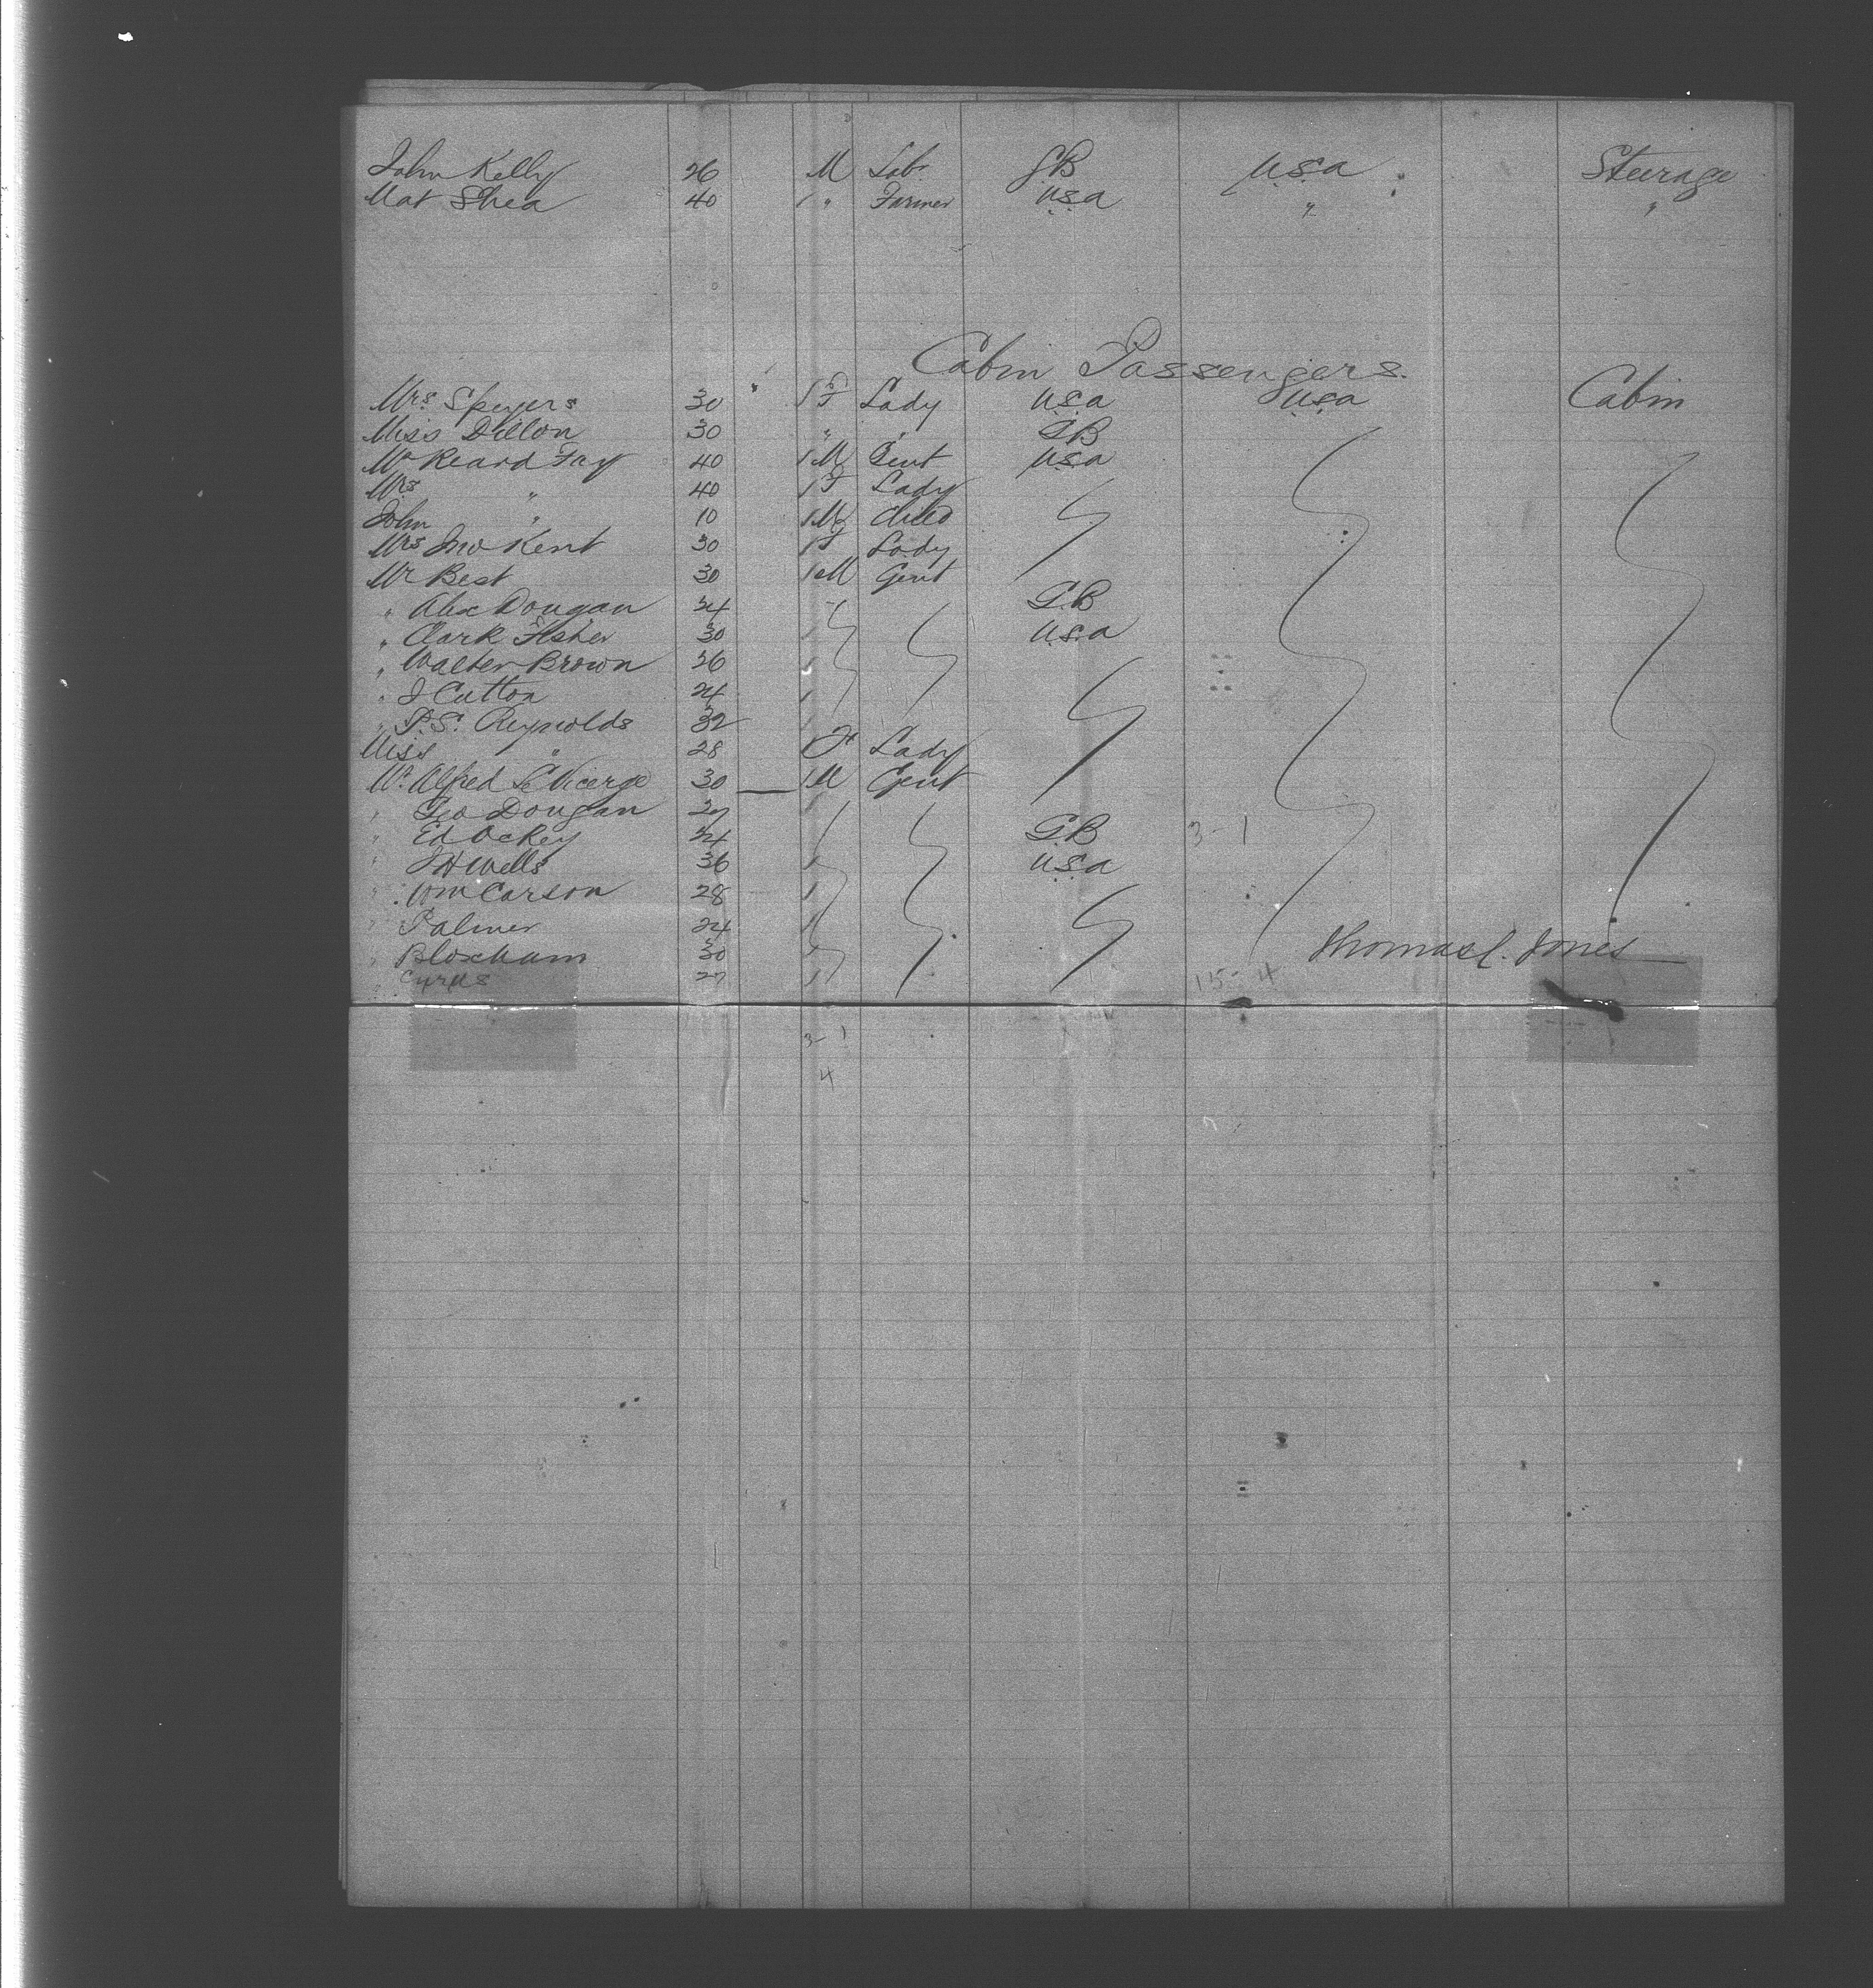 John Kelly 26 M Lab. GB U.S.A Steerage
Mat Shea 40 1 " Farmer U.S.A " "
Cabin Passengers.
Mrs. Speyers 30 1 F Lady U.S.A U.S.A Cabin
Miss Dillon 30 " " GB
Mr Read Fay 40 1 M Gent U.S.A
Mrs " 40 1 F Lady
John " 10 1 M Child
Mrs Jno Kent 30 1 F Lady
Mr Best 30 1 M Gent
" Alex Dougan 24 G.B
" Clark Fisher 30 1 U.S.A
" Walter Brown 26 1
" J Cutton 24 1
" P.S. Reynolds 32 1
Miss " 28 F Lady
Mr. Alfred 30 1 M Gent
" Geo Dougan 27 1
" Ed Ockey 24 G.B 3-1
" J H Wells 36 1 U.S.A
" Wm Carson 28 1
" Palmer 24 1
" Bloxham 30 Thomas C. Jones
" Cyrus 27 1 115-4
3-1
4